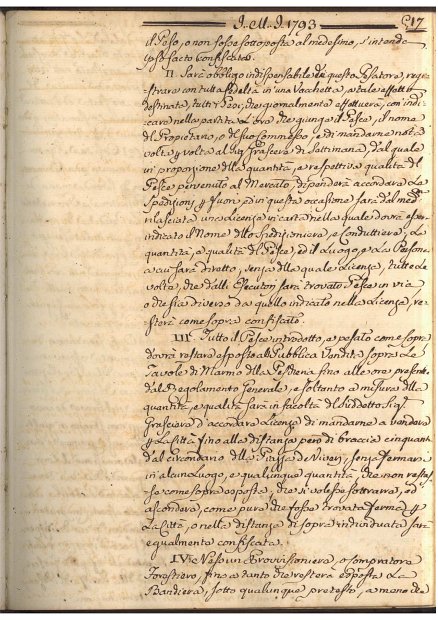 I. M. I. 1793 17
il Peso, o non fosse sottoposta al medesimo, s'intenda
ipso facto confiscata.
II. Sarà obbligo indispensabile di questo Pesatore, regi
strare con tutta fedeltà in una Vacchetta, a tale effetto
destinata, tutti i Pesi, che giornalmente effettuerà, con indi
care nella partita L'ora che giunga il Pesce, il nome
del Propietario, o del suo Commesso, e di mandarne nota
volta p volta al Grasciere di Settimana, dal quale
in proporzione della quantità, e respettiva qualità del
Pesce pervenuto al Mercato, dipenderà accordare Le
Spedizioni p fuori, e in questa occasione sarà dal med.
rilasciata una Licenza in carta nella quale dovrà esser
indicato il Nome dello Spedizioniere, e Conduttiere, La
quantità, e qualità del Pesce, ed il Luogo, e La Persona
a cui sarà diretto, senza della quale Licenza, tutte Le
volte, che dalli Esecutori sarà trovato Pesce in via
o che sia diverso da quello indicato nella Licenza, re
sterà come sopra confiscato.
III. Tutto il Pesce introdotto, e pesato come sopra
dovrà restare esposto alla Pubblica Vendita sopra Le
Tavole di Marmo della Pescheria fino alle ore
dal Regolamento Generale, e soltanto a misura della
quantità, e qualità sarà in facoltà del suddetto Sig.
Grasciere d'accordare Licenza di mandarne a vendere
p La Città fino alla distanza però di braccia cinquant
dal circondario della Piazza de' Viveri, senza fermarsi
in alcun Luogo, e qualunque quantità, che non restas
se come sopra esposta, che si volesse sottrarre, ed
ascondere, come pure che fosse trovata ferma p
La Città, o nella distanza di sopra individuata sarà
equalmente confiscata.
IV. Che Nessun Provisioniere, o Compratore
Forestiero, fino a tanto che resterà esposta La
Bandiera, sotto qualunque pretesto, a meno che